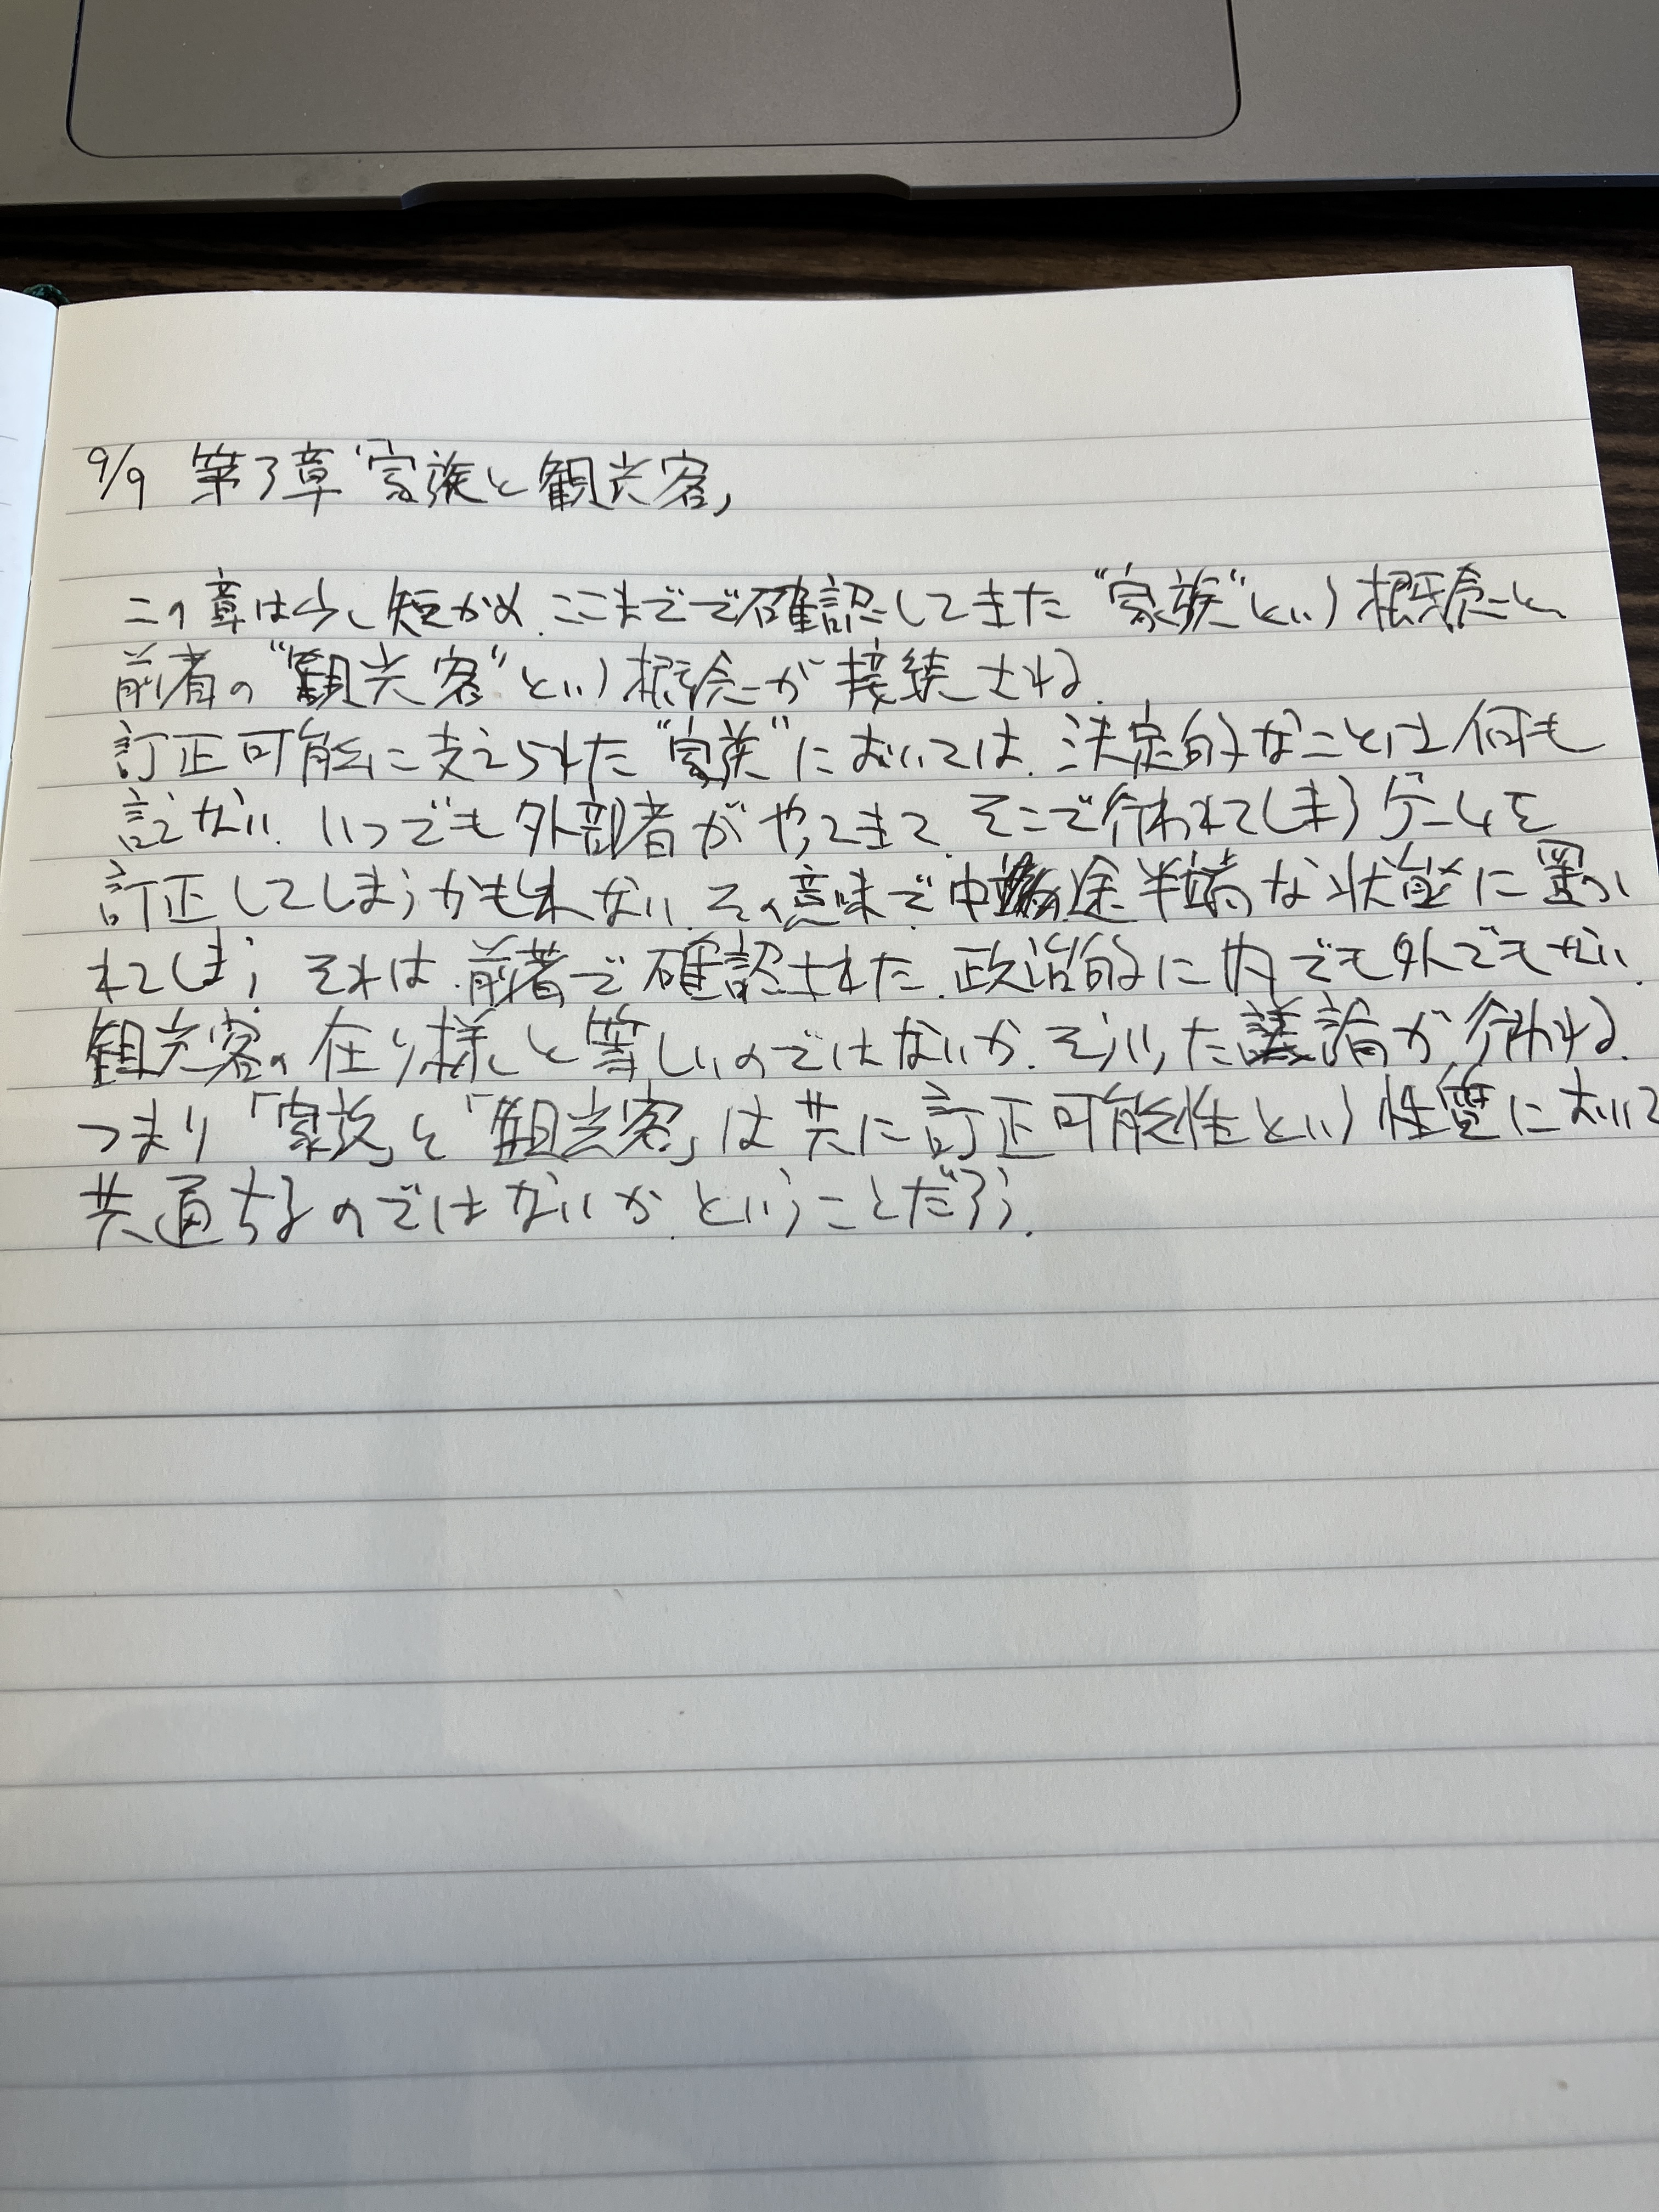 9/9 第3章「家族と観光客」
この章は少し短かめ。ここまでで確認してきた“家族”という概念と、
前著の“観光客”という概念が接続される。
訂正可能に支えられた“家族”においては、決定的なことは何も
ない。いつでも外部者がやってきて、そこで行われてしまうゲームを
訂正してしまうかも知れない。その意味で中途半端な状態に置か
れてしまう。それは、前著で確認された、政治的に内でも外でもない、
観光客の在り様と等しいのではないか。そういった議論が行われる。
つまり「家族」も「観光客」は共に訂正可能性という性質において
共通するのではないか、ということだろう。